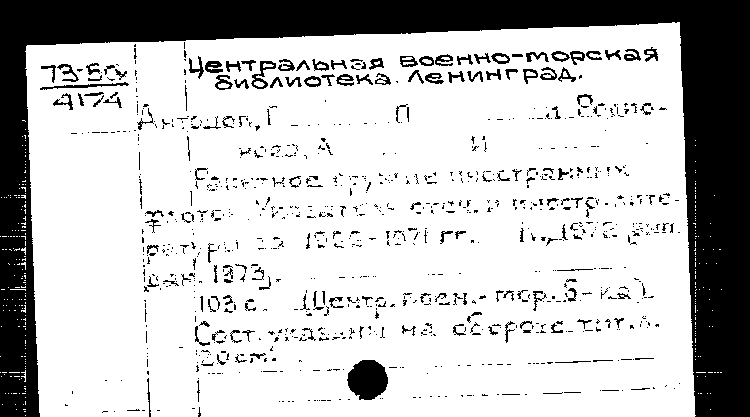 73-50
4174
Центральная военно-морская
библиотека. Ленинград.
Г П и
А И
Ракетное оружие иностранных
флотов. Указатель отеч. и иностр. лите-
ратуры за 1971 гг. Л., 1972
дан. 1973].
103 с. (Центр. воен.-мор. б-ка).
Сост. указаны на обороте тит. л.
20 см.